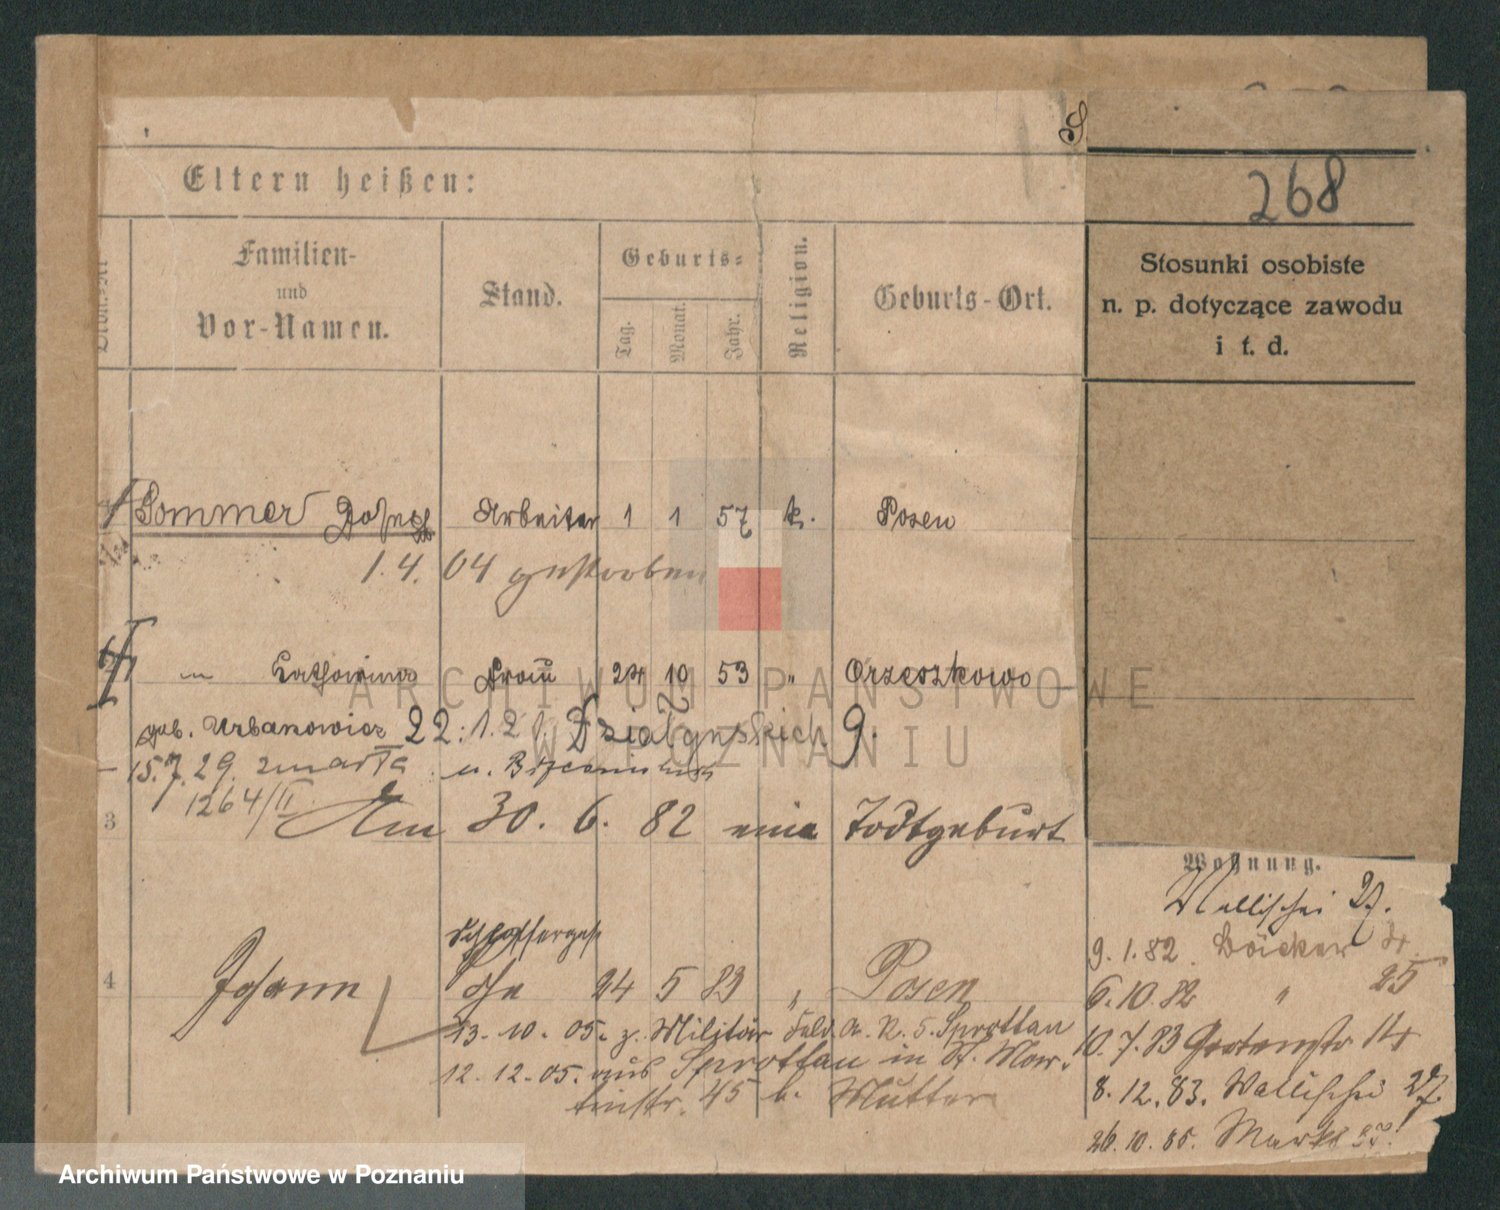 S
268
Eltern heißen:
Familien-
und
Vor-Namen.
Stand.
Geburts-
Tag.
Monat.
Jahr.
Religion.
Geburts-Ort.
Stosunki osobiste
n. p. dotyczące zawodu
i t. d.
Sommer Joseph Arbeiter 1 1 57 k. Posen
1. 4. 04 gestorben
2 " Katharina Frau 24 10 53 " Orzeszkowo
geb. Urbanowicz 22. 1. 21. Działyńskich 9.
15.7.29. zmarła
1264/II
3 Am 30. 6. 82 eine Todtgeburt
Wohnung.
Wallischei 27.
9. 1. 82. Bäcker
Schlossergese
4 Johann 24 5 83 " Posen
6. 10. 82 " 25
13. 10. 05. z. Militär Feld. A. R. 5. Sprottau
10. 7. 83 Gartenstr 14
12. 12. 05. aus Sprottau in St. Mar-
tinstr. 45 b. Mutter
8. 12. 83. Wallischei 27.
26. 10. 85. Markt
ARCHIWUM PAŃSTWOWE
W POZNANIU
Archiwum Państwowe w Poznaniu